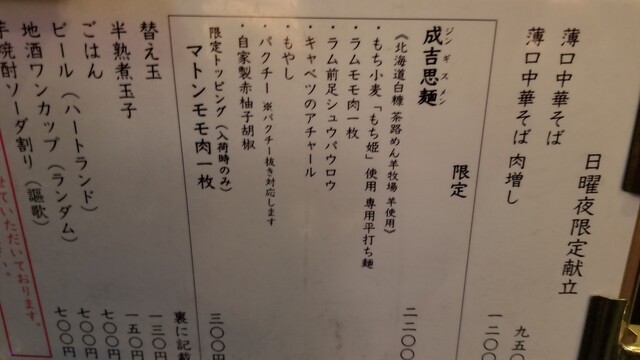 日曜夜限定献立
薄口中華そば
九五
薄口中華そば 肉増し
一二〇
限定
ジンギスメン
成吉思麺
二二〇〇
《北海道白糠 茶路めん羊牧場 羊使用》
・もち小麦「もち姫」使用 専用平打ち麺
・ラムモモ肉一枚
・ラム前足シュウパウロウ
・キャベツのアチャール
・もやし
・パクチー ※パクチー抜き対応します
・自家製赤柚子胡椒
限定トッピング(入荷時のみ)
マトンモモ肉一枚
三〇〇円
裏に記載
替え玉
一三〇円
半熟煮玉子
一五〇円
ごはん
七〇〇円
ビール(ハートランド)
七〇〇円
地酒ワンカップ(ランダム)
七〇〇円
芋焼酎ソーダ割り(謳歌)
せていただいております。